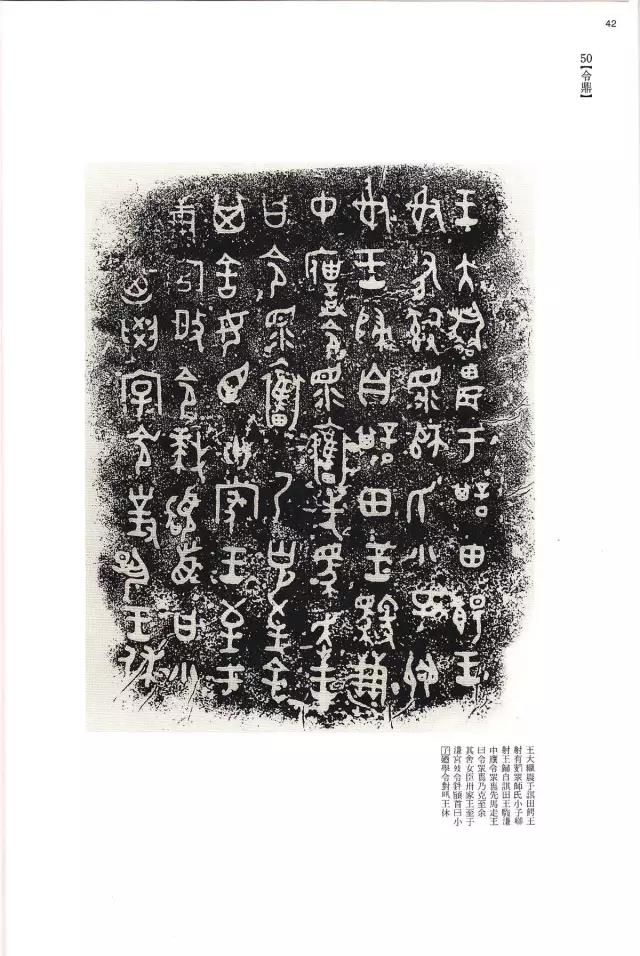 42
50【令鼎】
王大耤農于諆田餳王
射有𤔲眔師氏小子
射王歸自諆田王馭溓
中僕令眔奮先馬走王
曰令眔奮乃克至余
其舍女臣卅家王至于
溓宮令首曰小
子廼學令對王休